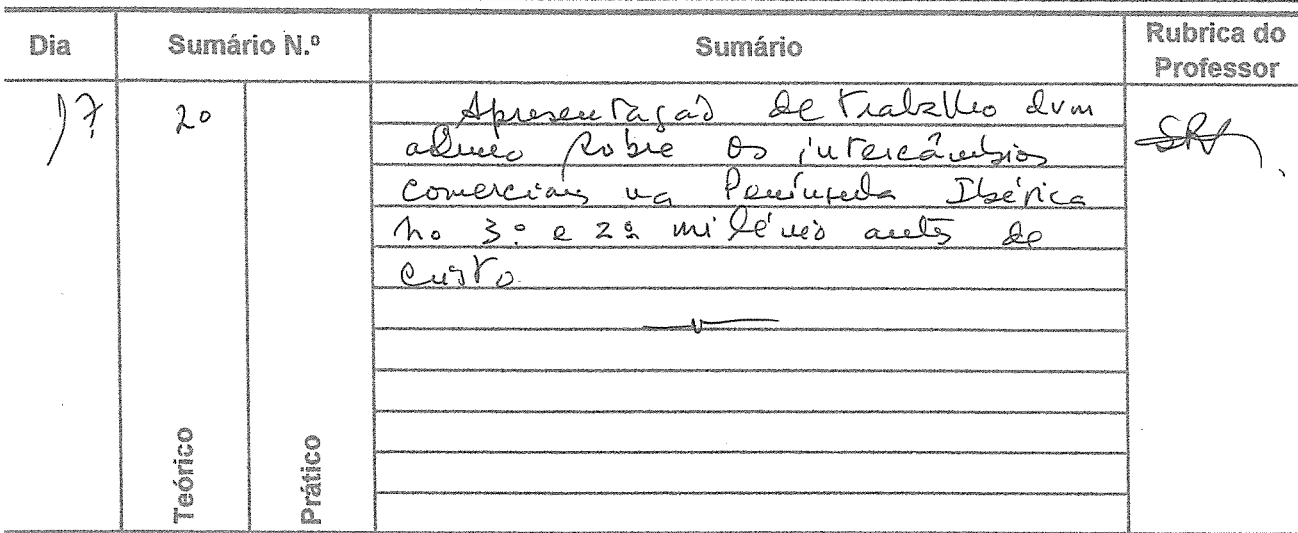 Dia Sumário N.º Sumário Rubrica do Professor
17 20 Apresentação de trabalho dum
aluno sobre os intercâmbios
comerciais na Península Ibérica
no 3º e 2º milénio antes de
Cristo.
Teórico Prático